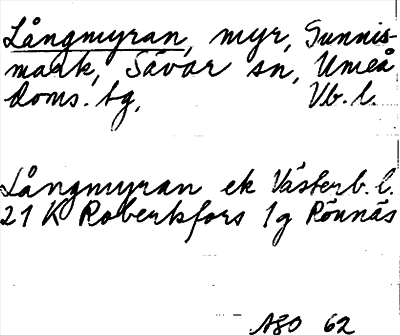 Långmyran, myr, Gunnis-
mark, Sävar sn, Umeå
doms. tg, Vb. l.
Långmyran ek Västerb. l.
21 K Robertsfors 1g Rönnäs
ASO 62